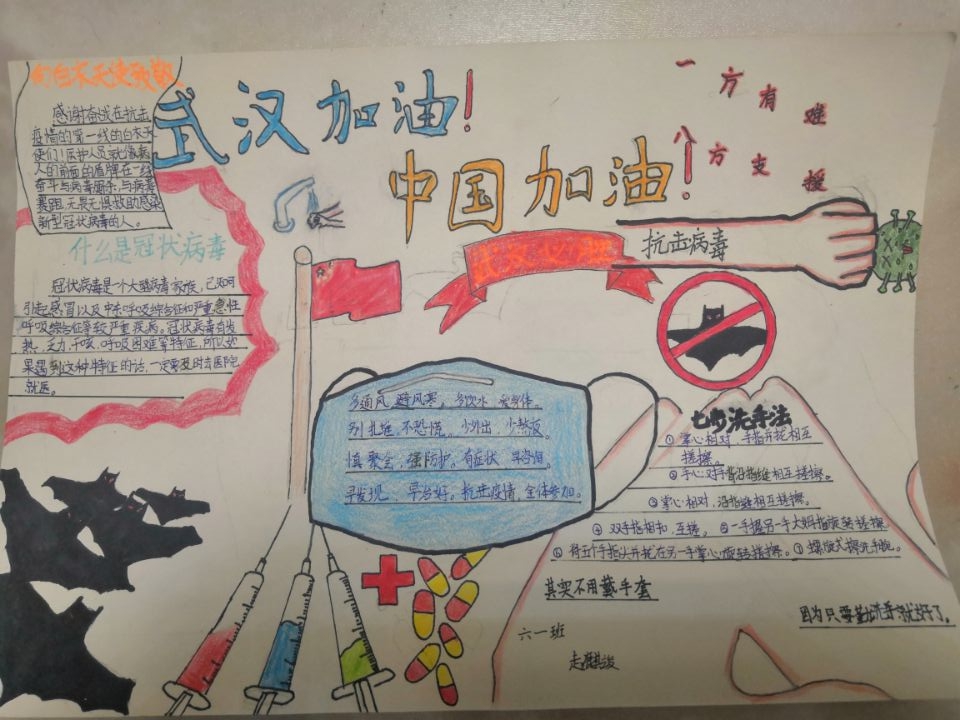 向白衣天使致敬
感谢奋战在抗击
疫情的第一线的白衣天
使们!医护人员就像病
人的前面的盾牌在一线
奋斗与病毒厮杀,与病毒
暴跑,无畏无惧救助感染
新型冠状病毒的人。
武汉加油!
中国加油!
一方有难
八方支援
抗击病毒
武汉必胜
什么是冠状病毒
冠状病毒是一个大型病毒家族,已知可
引起感冒以及中东呼吸综合征和严重急性
呼吸综合征等较严重疾病。冠状病毒有发
热、乏力、干咳、呼吸困难等特征,所以如
果遇到这种特征的话,一定要及时去医院
就医。
多通风,避风寒,多饮水,爱身体。
别扎堆,不恐慌,少外出,少熬夜。
慎聚会,强防护,有症状,早咨询。
早发现、早治好。抗击疫情,全体参加。
七步洗手法
①掌心相对,手指并拢相互
搓擦。
②手心对手背沿指缝相互搓擦。
③掌心相对,沿指缝相互搓擦。
④双手指相扣,互搓。⑤一手握另一手大姆指旋转搓擦
⑥将五个手指尖并拢在另一手掌心旋转搓擦。⑦螺旋式擦洗手腕。
其实不用戴手套
因为只要勤洗手就好了。
六一班